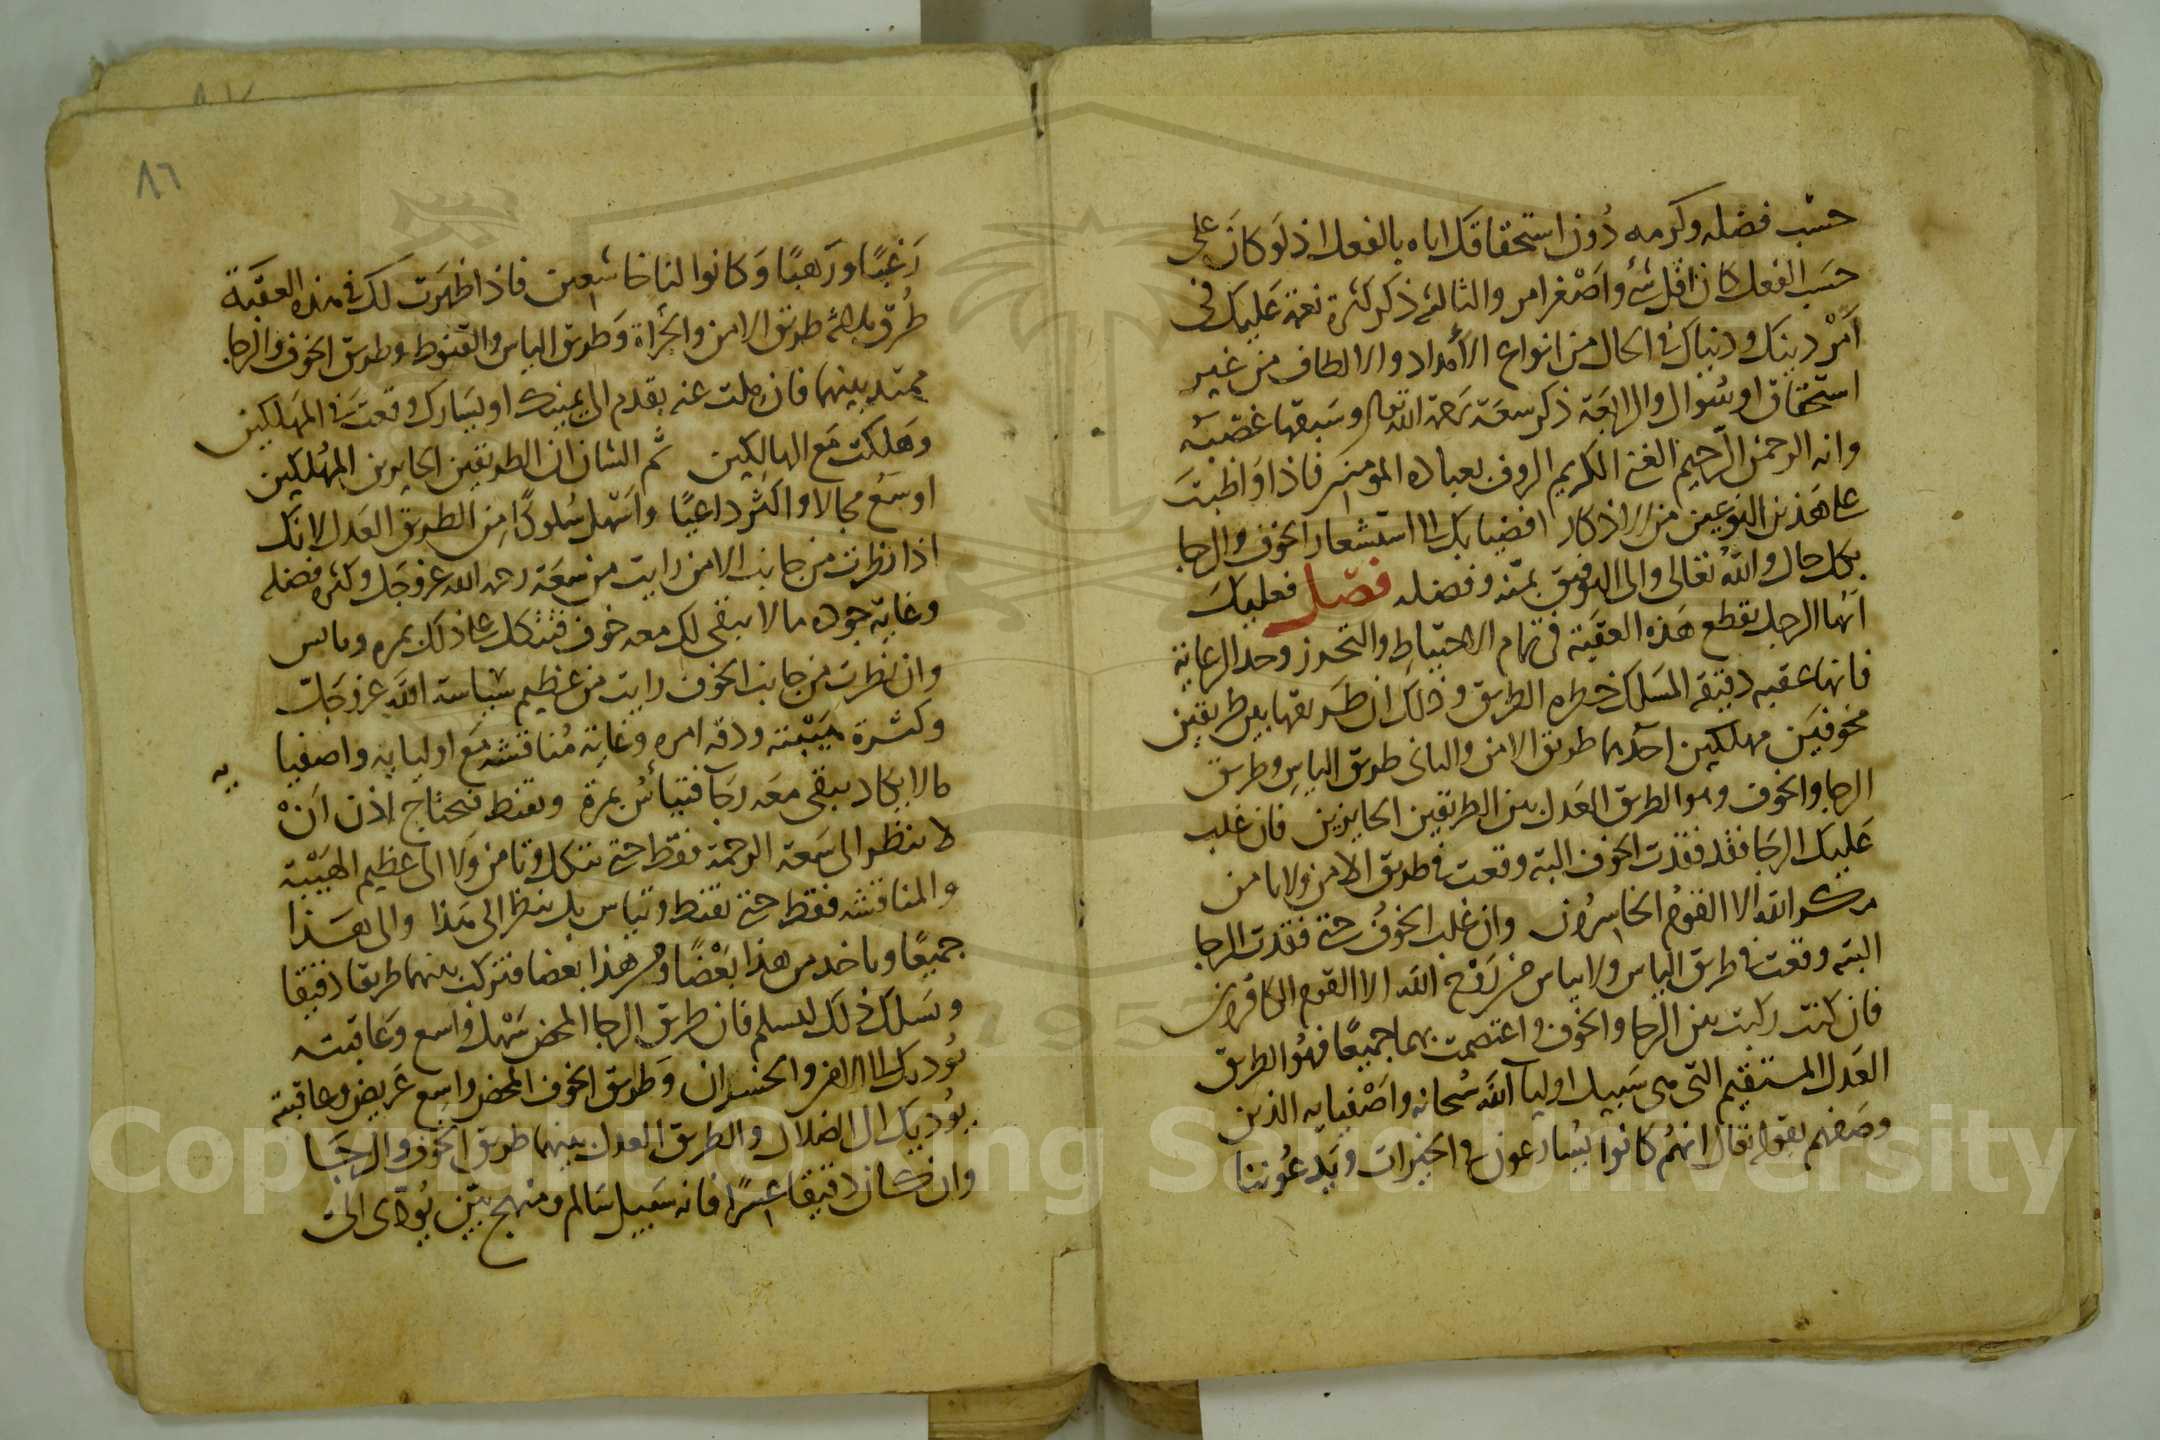 حسب فضله وكرمه دون استحقاقك اياه بالفعل اذ لو كان على
حسب الفعل كان اقل شئ واصغر امر والثالث ذكر كثرة نعمه عليك في
امر دينك ودنياك في الحال من انواع الامداد والالطاف من غير
استحقاق او سُوال والرابعة ذكر سعة رحمة الله وسبقها غضبه
وانه الرحمن الرحيم الغني الكريم الروف بعباده المومنين فاذا واظبت
على هذين النوعين من الاذكار افضيا بك الى استشعار الخوف والرجا
بكل حال والله تعالى والى التوفيق بمنه وفضله فصل فعليك
ايها الرجل بقطع هذه العقبة في تمام الاحتياط والتحرز وحد الرعاية
فانها عقبه دقيقه المسلك خطره الطريق وذلك ان طريقها بين طريقين
مخوفين مهلكين احدهما طريق الامن والثاني طريق الياس وطريق
الرجا والخوف وهو الطريق العدل بين الطريقين الجايرين فان غلب
عليك الرجا فقد فقدت الخوف البته وقعت في طريق الامن ولا يامن
مكر الله الا القوم الخاسرون وان غلب الخوف حتى فقدت الرجا
البته وقعت في طريق الياس ولا يياس من رَوْح الله الا القوم الكافرون
فان كنت ركبت بين الرجا والخوف واعتصمت بهما جميعًا فهو الطريق
العدل المستقيم التي هي سبيل اوليآ الله سُبحانه واصفيايه الذين
وصفهم بقوله تعالى انهم كانوا يسارعون في الخيرات ويدعوننا
٨٦
رَغبًا ورَهبًا وَكانوا لنا خاشعين فاذا ظهرت لك في هذه العقبة
طُرق ثلاثة طريق الامن والجُرأة وَطريق الياس والقنوط وطريق الخوف والرجا
ممتد بينهما فان ملت عنه بقدم الى يمينك او يسارك وقعت في المهلكين
وهلكت مع الهالكين ثم الشان ان الطريقين الجايرين المهلكين
اوسع مجالا واكثر داعيًا واسهل سُلوكًا من الطريق العدل لانك
اذا نظرت من جانب الامن رايت من سعة رحمة الله عز وجل وكثرة فضله
وغاية جوده ما لا يبقى لك معه خوف فتتكل على ذلك بمره وتامن
وان نظرت من جانب الخوف رايت من عظيم سياسة الله عز وجل
وكثرة هيبته ودقة امره وغاية مُناقشته مع اوليايه واصفيا
يه
ما لا يكاد يبقى معه رجآ فتيأس بمرة وتقنط فتحتاج اذن ان
لا تنظر الى سَعة الرحمة فقط حتى تتكل وتامن ولا الى عظيم الهيبة
والمناقشه فقط حتى تقنط وتياس بل تنظر الى هذا والى هذا
جميعًا وتاخذ من هذا بعضًا ومن هذا بعضا فتركب بينهما طريقا دقيقا
وتسلك ذلك لتسلم فان طريق الرجا المحض سهل واسع وعاقبته
تُوديك الى الامن والخسران وَطريق الخوف المحض واسع عريض وعاقبته
يُوديك الى الضلال والطريق العدل بينهما طريق الخوف والرجَا
وان كان دقيقا عسرًا فانه سبيل سالم ومنهج بيّن يُودي الى
Copyright © King Saud University
1957